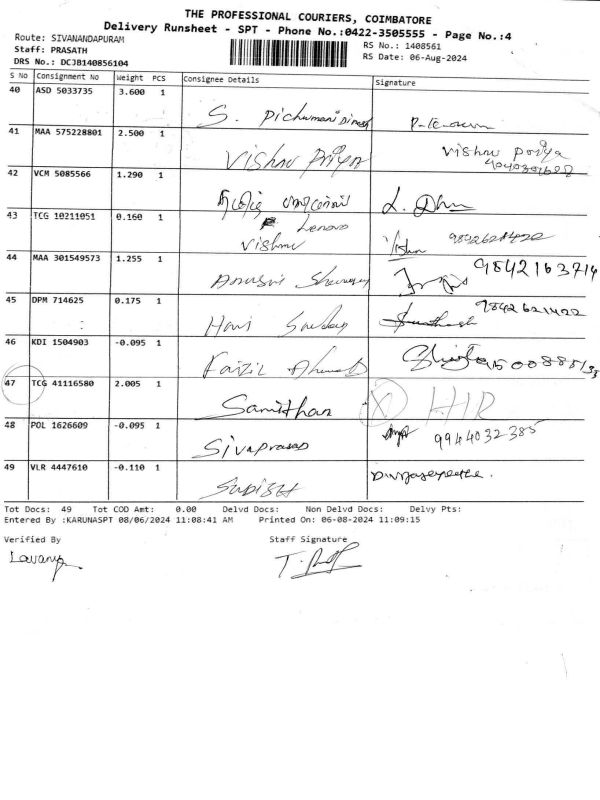 THE PROFESSIONAL COURIERS, COIMBATORE
Delivery Runsheet - SPT - Phone No.:0422-3505555 - Page No.:4
Route: SIVANANDAPURAM
RS No.: 1408561
Staff: PRASATH
RS Date: 06-Aug-2024
DRS No.: DCJB140856104
S No Consignment No Weight PCS Consignee Details Signature
40 ASD 5033735 3.600 1 S.
41 MAA 575228801 2.500 1 Vishnu Priya Vishnu Poriya
42 VCM 5085566 1.290 1
43 TCG 10211051 0.160 1 Lenovo
Vishnu Vishnu
44 MAA 301549573 1.255 1 9842163714
45 DPM 714625 0.175 1 Hari 9842621422
46 KDI 1504903 -0.095 1 Faizil Ahamed
47 TCG 41116580 2.005 1 Samithan HR
48 POL 1626609 -0.095 1 Sivaprasad 9944032385
49 VLR 4447610 -0.110 1
Tot Docs: 49 Tot COD Amt: 0.00 Delvd Docs: Non Delvd Docs: Delvy Pts:
Entered By :KARUNASPT 08/06/2024 11:08:41 AM Printed On: 06-08-2024 11:09:15
Verified By Staff Signature
Lavanya